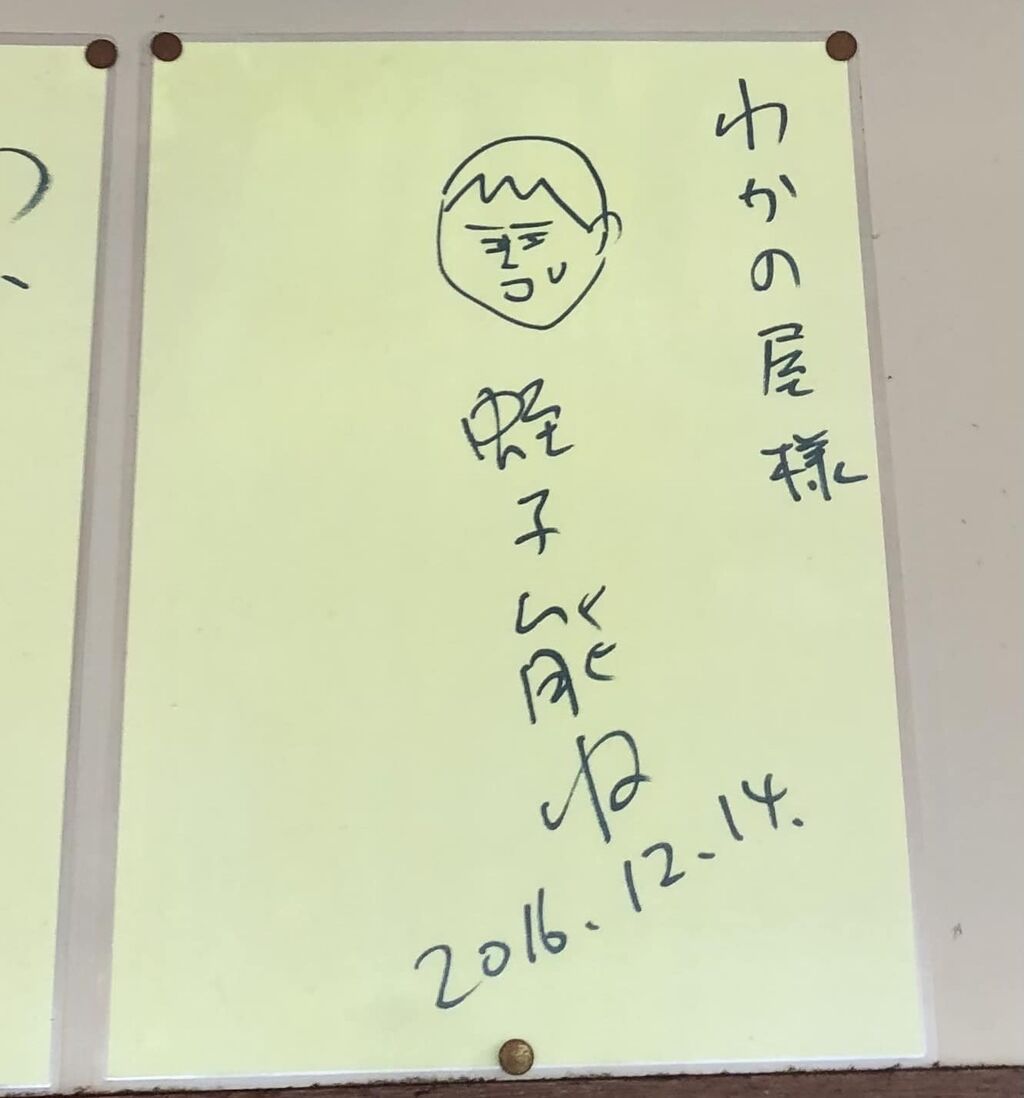 わかの屋様
蛭子能収
2016.12.14.